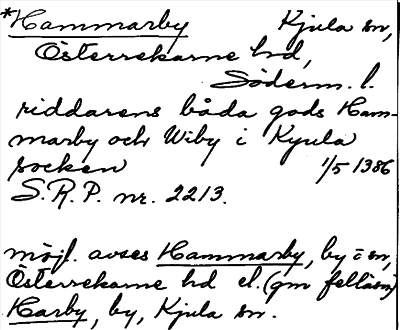 *Hammarby Kjula sn,
Österrekarne hd,
Söderm. l.
riddarens båda gods Ham-
marby och Wiby i Kyula
socken 1/5 1386
S.R.P. nr. 2213.
möjl. avses Hammarby, by i sn,
Österrekarne hd el. (gm felläsn)
Harby, by, Kjula sn.